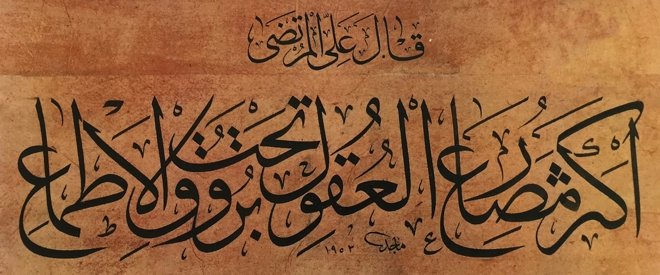 قَالَ عَلِيّ المُرتَضَى
اكثر مَصَارع العُقول تحت بروق الاطماع
ماجد
١٩٥٢